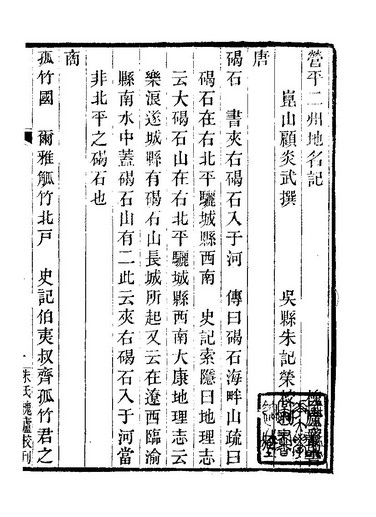 營平二州地名記
崑山顧炎武撰 吳縣朱記榮校
唐
碣石 書夾右碣石入于河 傳曰碣石海畔山疏曰
碣石在右北平驪城縣西南 史記索隱曰地理志
云大碣石山在右北平驪城縣西南大康地理志云
樂浪遂城縣有碣石山長城所起又云在遼西臨渝
縣南水中蓋碣石山有二此云夾右碣石入于河當
非北平之碣石也
商
孤竹國 爾雅觚竹北戶 史記伯夷叔齊孤竹君之
朱氏槐廬校刊